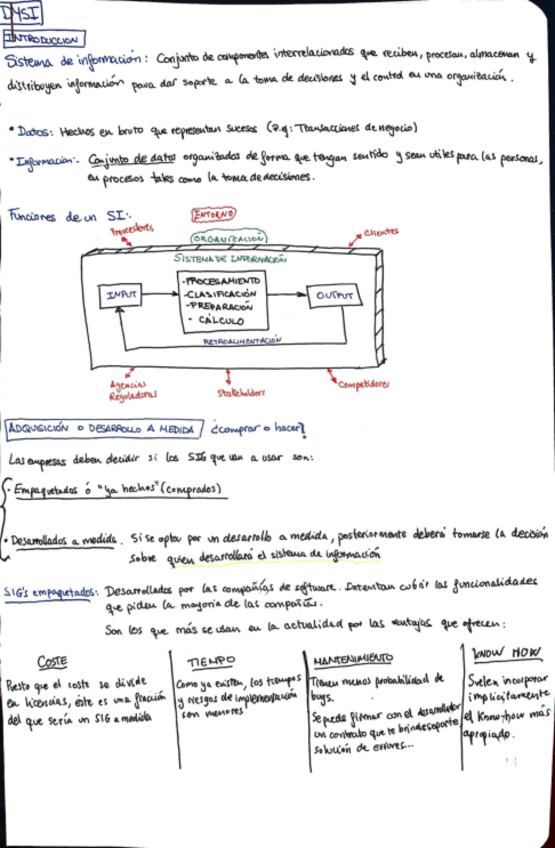 DYSI
INTRODUCCION
Sistema de información: Conjunto de componentes interrelacionados que reciben, procesan, almacenan y
distribuyen información para dar soporte a la toma de decisiones y el control en una organización.
• Datos: Hechos en bruto que representan sucesos (P.ej: Transacciones de negocio)
• Información: Conjunto de datos organizados de forma que tengan sentido y sean utiles para las personas,
en procesos tales como la toma de decisiones.
Funciones de un SI:
ENTORNO
Proveedores
ORGANIZACIÓN
Clientes
SISTEMA DE INFORMACIÓN
INPUT
-PROCESAMIENTO
-CLASIFICACIÓN
-PREPARACIÓN
- CÁLCULO
OUTPUT
RETROALIMENTACIÓN
Agencias
Reguladoras
Stakeholders
Competidores
ADQUISICIÓN O DESARROLLO A MEDIDA ¿comprar o hacer?
Las empresas deben decidir si los SIG que van a usar son:
• Empaquetados ó "ya hechos" (comprados)
• Desarrollados a medida. Si se opta por un desarrollo a medida, posteriormente deberá tomarse la decisión
sobre quien desarrollará el sistema de información
SIG's empaquetados: Desarrollados por las compañías de software. Intentan cubrir las funcionalidades
que piden la mayoría de las compañías.
Son los que más se usan en la actualidad por las ventajas que ofrecen:
COSTE
Puesto que el coste se divide
en licencias, éste es una fracción
del que sería un SIG a medida
TIEMPO
Como ya existen, los tiempos
y riesgos de implementación
son menores
MANTENIMIENTO
Tienen menos probabilidad de
bugs.
Se puede firmar con el desarrollador
un contrato que te brinde soporte,
solución de errores...
KNOW HOW
Suelen incorporar
implícitamente
el Know-how más
apropiado.